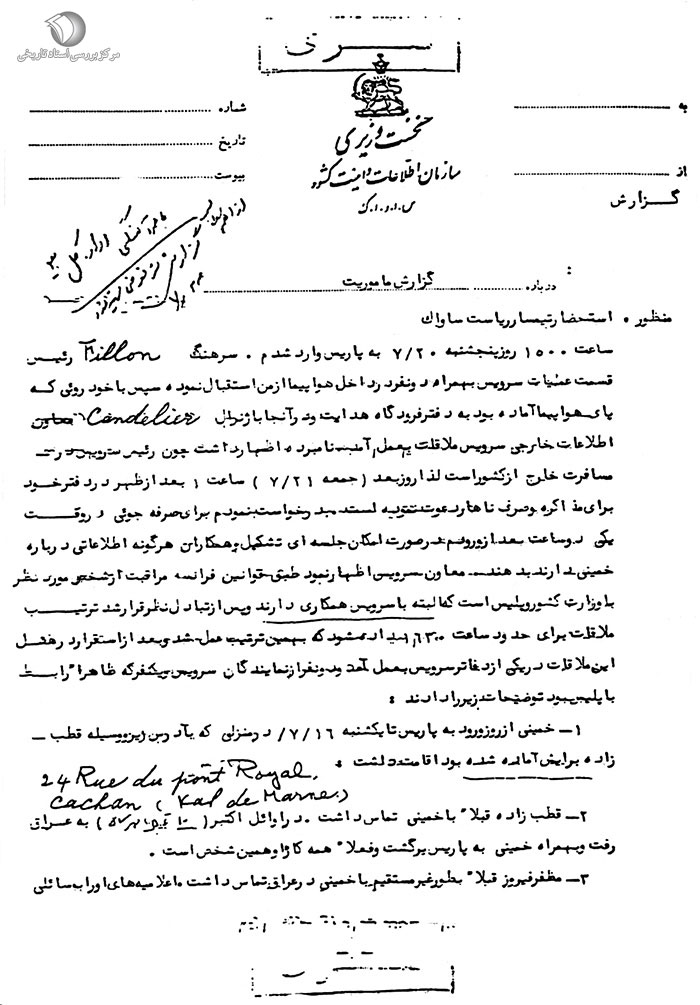 مرکز بررسی اسناد تاریخی
سری
نخست وزیری
سازمان اطلاعات و امنیت کشور
س.ا.و.ا.ک
به
از
گزارش
شماره
تاریخ
پیوست
درباره گزارش ماموریت
منظور . استحضار تیمسار ریاست ساواک
ساعت ۱۵۰۰ روز پنجشنبه ۷/۲۰ به پاریس وارد شدم . سرهنگ Fillon رئیس
قسمت عملیات سرویس بهمراه دونفر در داخل هواپیما از من استقبال نموده سپس با خودروئی که
پای هواپیما آماده بود به دفتر فرودگاه هدایت و در آنجا با ژنرال Candelier معاون
اطلاعات خارجی سرویس ملاقات بعمل آمد نامبرده اظهار داشت چون رئیس سرویس در
مسافرت خارج از کشور است لذا روز بعد ( جمعه ۷/۲۱ ) ساعت ۱ بعد از ظهر در دفتر خود
برای مذاکره و صرف ناهار دعوت نموده است درخواست نمودم برای صرفه جوئی در وقت
یکی دو ساعت بعد از ورودم در صورت امکان جلسه ای تشکیل و همکاران هرگونه اطلاعاتی درباره
خمینی دارند بدهند . معاون سرویس اظهار نمود طبق قوانین فرانسه مراقبت از شخص مورد نظر
با وزارت کشور و پلیس است که البته با سرویس همکاری دارند و پس از تبادل نظر قرار شد ترتیب
ملاقات برای حدود ساعت ۱۶۳۰ داده شود که بهمین ترتیب عمل شد و بعد از استقرار در هتل
این ملاقات در یکی از دفاتر سرویس بعمل آمد و دونفر از نمایندگان سرویس و یکنفر که ظاهرا" رابط
با پلیس بود توضیحات زیر را دادند :
۱ـ خمینی از روز ورود به پاریس تا یکشنبه ۷/۱۶ در منزلی که بآدرس زیر وسیله قطب ـ
زاده برایش آماده شده بود اقامت داشت .
24 Rue du pont Royal.
Cachan ( Val de Marne.)
۲ـ قطب زاده قبلا" با خمینی تماس داشت . در اوائل اکتبر ( ) به عراق
رفت و بهمراه خمینی به پاریس برگشت و فعلا" همه کاره او همین شخص است .
۳ـ مظفر فیروز قبلا" بطور غیر مستقیم با خمینی در عراق تماس داشت . اعلامیه های او را به سائلی